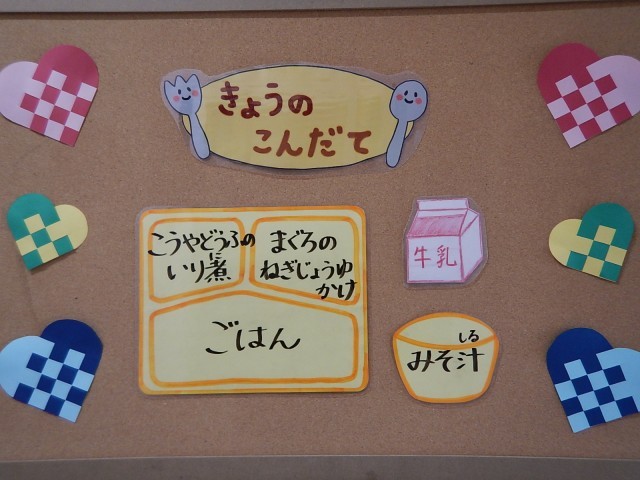 きょうの
こんだて
こうやどうふの
いり煮
に
まぐろの
ねぎじょうゆ
かけ
ごはん
牛乳
しる
みそ汁